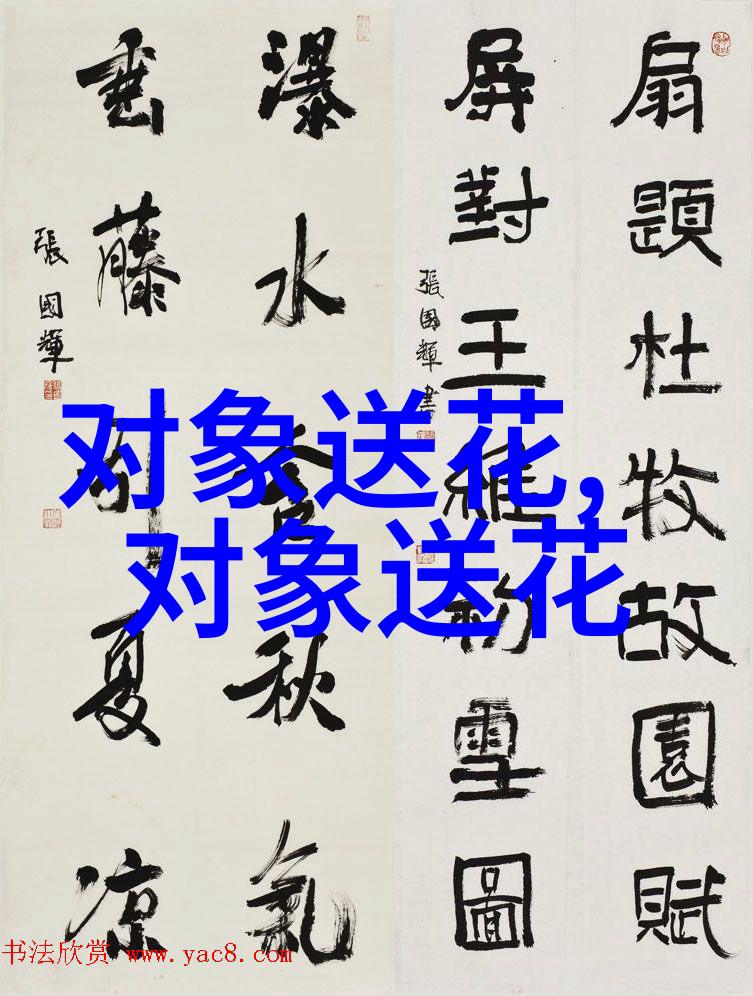 扇題杜牧故園賦
屏對王維初雪圖
張國輝書
瀑水含秋氣
垂藤引夏凉
張國輝
对象送花,
对象送花
书法欣赏 www.yac8.com